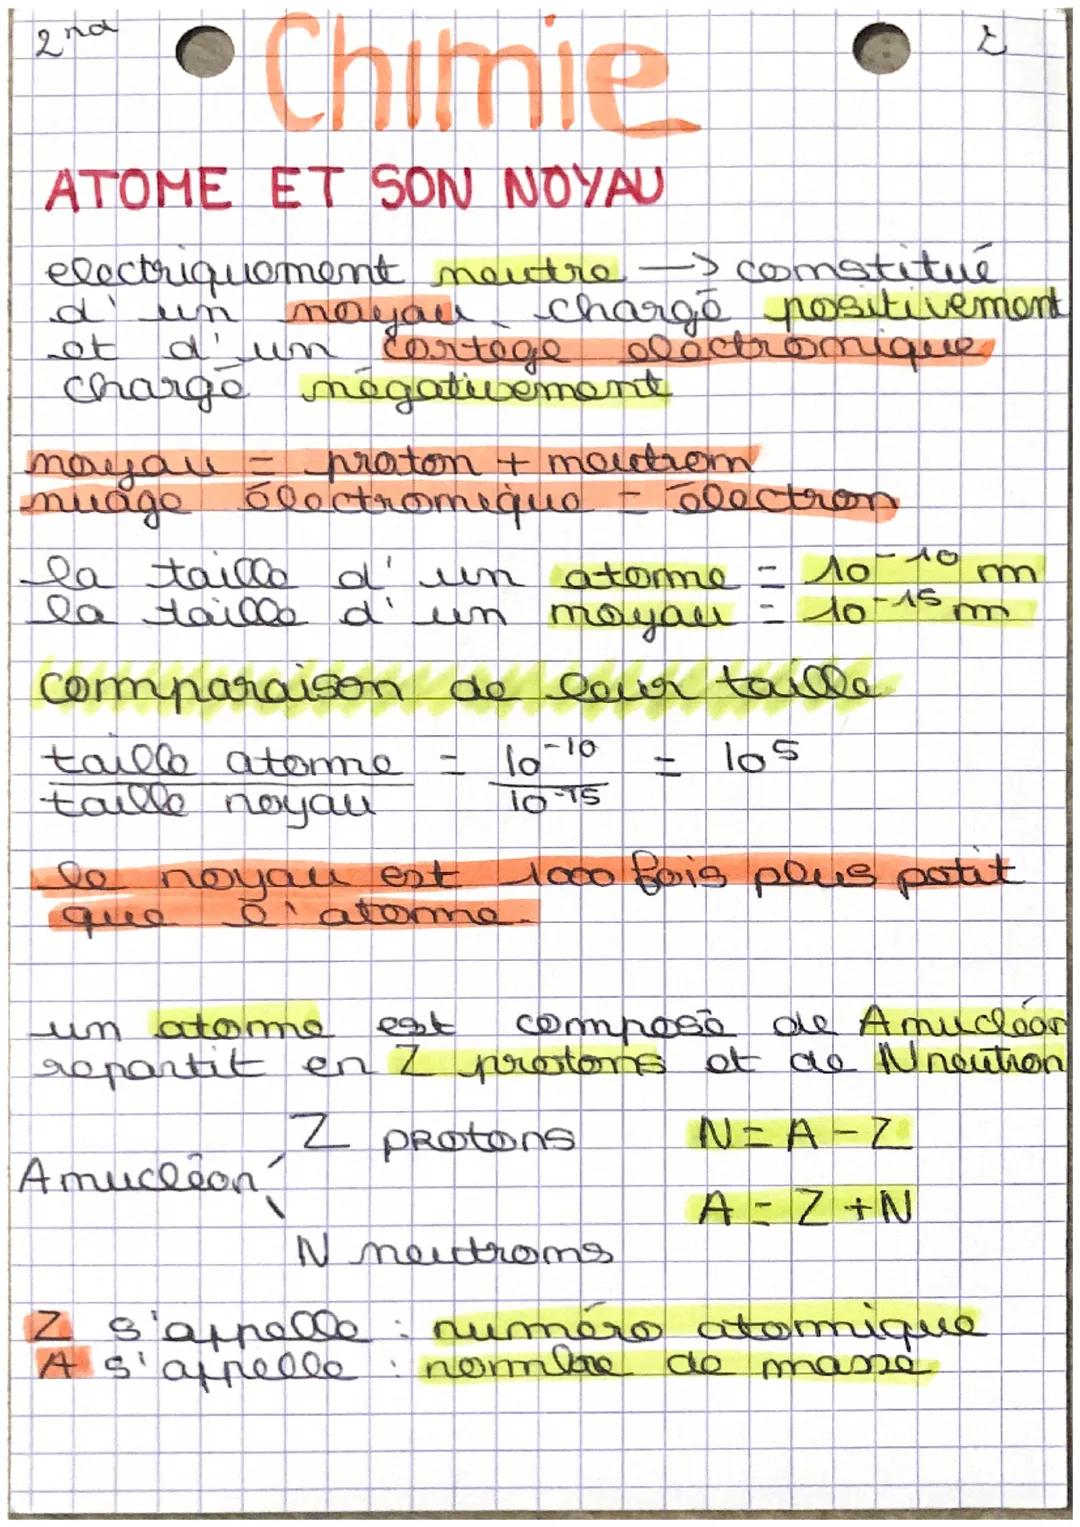 2nd
Chimie
ATOME ET SON NOYAU
electriquement neutre → constitué
d'un noyau chargé positivement
et d'un cortège électronique
chargé négativement
noyau = proton + neutron
nuage électronique = électron
la taille d'un atome = 10⁻¹⁰ m
la taille d'un noyau = 10⁻¹⁵ m
comparaison de leur taille
taille atome / taille noyau = 10⁻¹⁰ / 10⁻¹⁵ = 10⁵
le noyau est 1000 fois plus petit
que l'atome.
un atome est composé de A nucléon
repartit en Z protons et de N neutron
Z protons N = A - Z
A nucléon
A = Z + N
N neutrons
Z s'appelle : numéro atomique
A s'appelle : nombre de masse